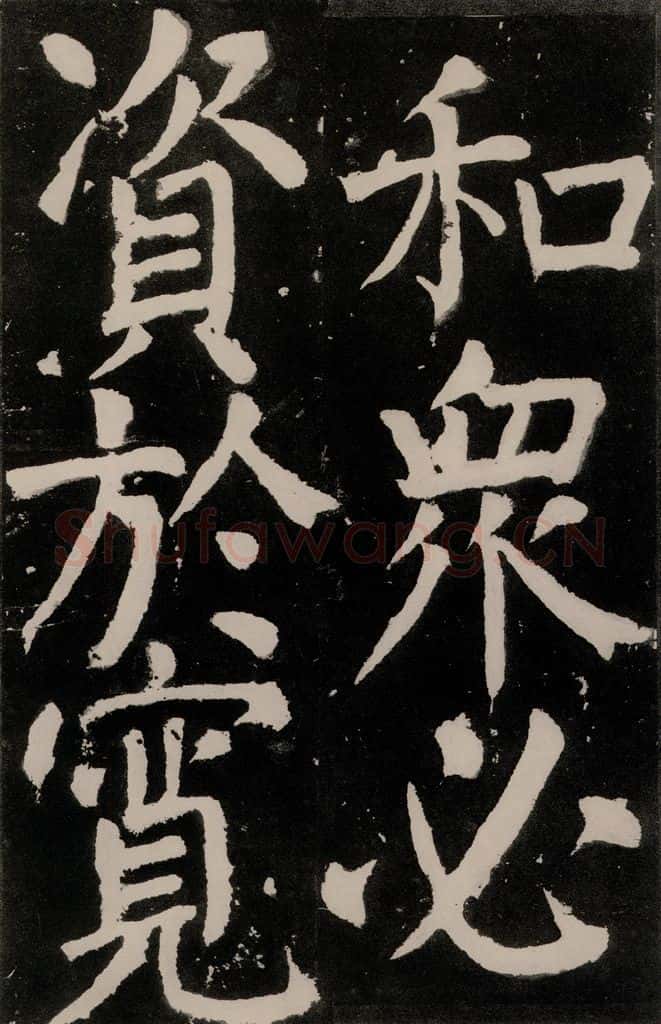 和衆必
資於寬
Shufawang.CN